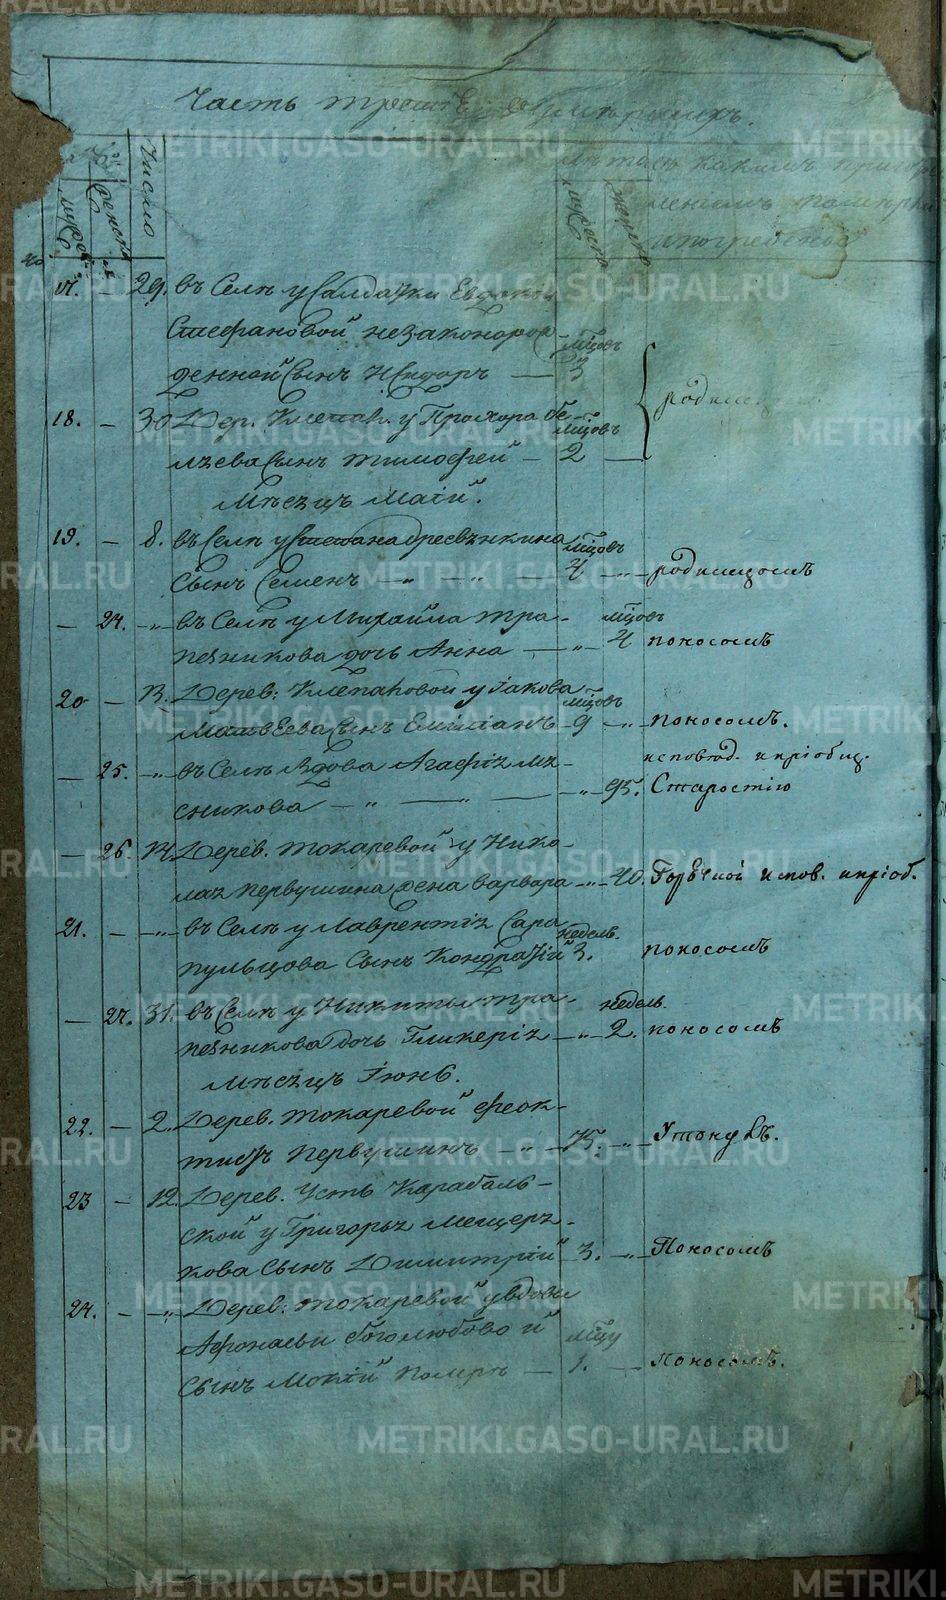 Часть третія о умершихъ.
Число
мужеска
женска
лѣта
какимъ
мужеска
женска
и погребены
17. — 29. въ Селѣ у Салдатки Евдокіи
Стефановой незаконорож-
денной Сынъ Исидоръ — мцовъ 3
родимцомъ
18. — 30 Дер. Клепак. у Прохора Бе-
ляева Сынъ Тимофей — мцовъ 2 —
Мѣсяцъ Маій.
19. — 8. въ Селѣ у Степана Дресвянкина
Сынъ Семенъ — „ — „ — мцовъ 4 — „ — родимцомъ
— 24. — „ — въ Селѣ у Михайла Тра-
пезникова дочь Анна — „ — мцовъ 4 поносомъ
20 — 13. Дерев: Клепаковой у Іакова
Матвеева Сынъ Емиліанъ — мцовъ 9 — „ — поносомъ.
— 25. — „ — въ Селѣ Вдова Агафія Мя-
сникова — „ — „ — „ — 95. исповѣд. и пріобщ.
Старостію
— 26. 14. Дерев. Токаревой у Нико-
лая Первушина жена Варвара — „ — 40. Горячкой испов. и пріоб.
21. — „ — въ Селѣ у Лаврентія Сара-
пульцова Сынъ Кондратій недель. 3. поносомъ
— 27. 31. въ Селѣ у Никиты Тра-
пезникова дочь Гликерія — „ — недель. 2. поносомъ
Мѣсяцъ Іюнь.
22. — 2. Дерев. Токаревой Феок-
тистъ Первушинъ — „ — 75. — „ — Утонулъ.
23 — 12. Дерев. Усть Карабаль-
ской у Григорья Мещеря-
кова Сынъ Димитрій 3. — „ — Поносомъ
24. — „ — Дерев: Токаревой у вдовы
Афонасьи Боголюбово й
Сынъ Мокій померъ — мцу 1. — Поносомъ.
METRIKI.GASO-URAL.RU